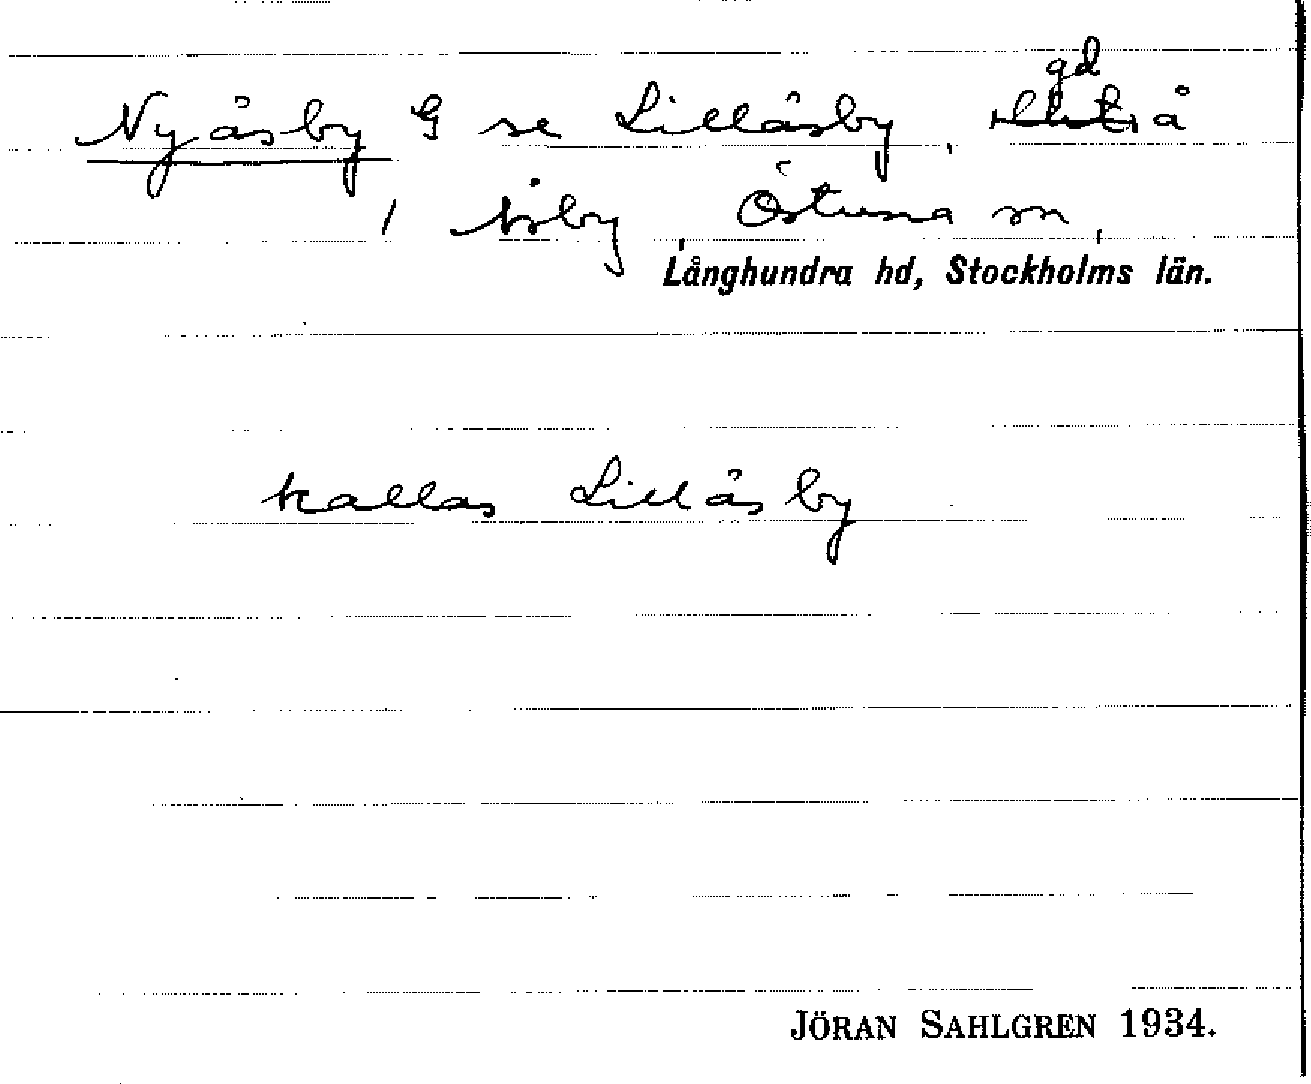 gd
Nyåsby G se Lillåsby, å
/ Åsby Östuna sn,
Långhundra hd, Stockholms län.
kallas Lillåsby
JÖRAN SAHLGREN 1934.